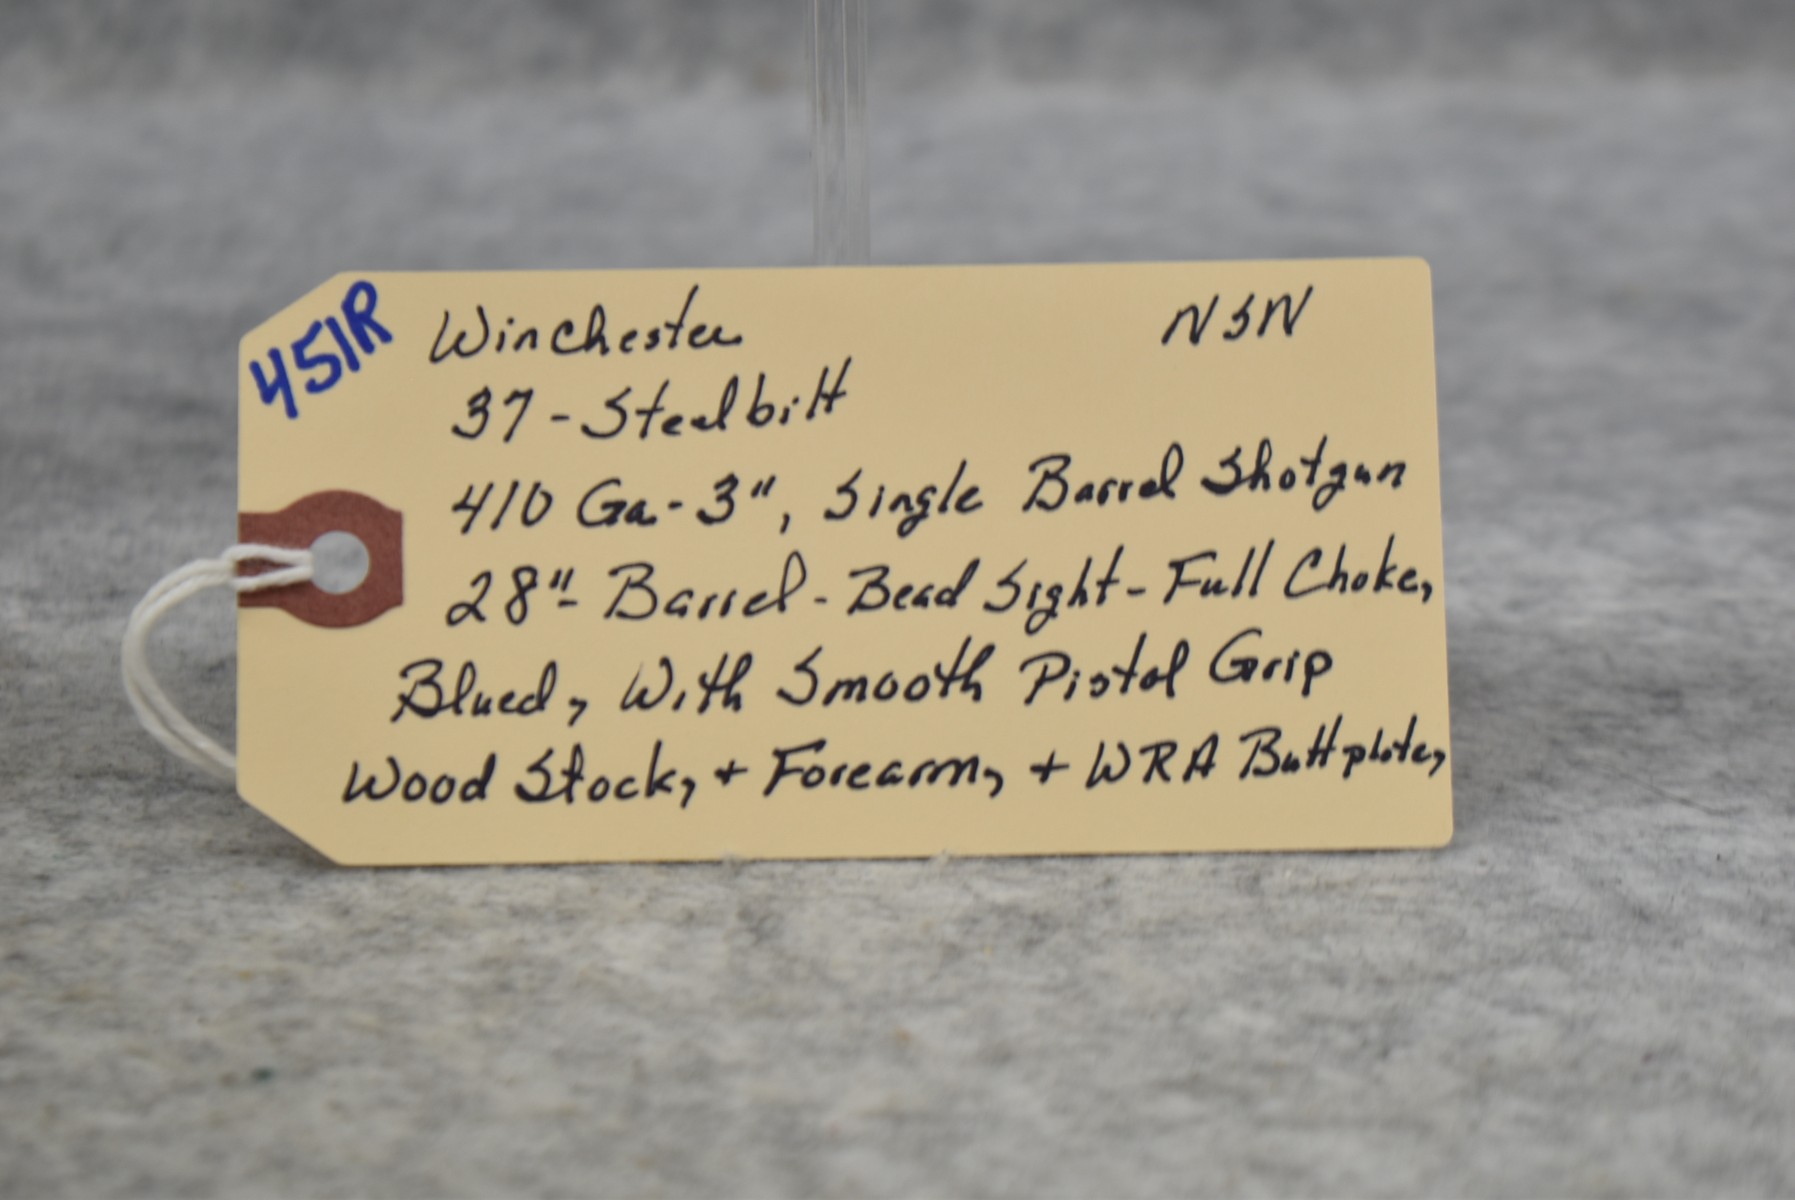 451R
Winchester NSN
37-Steelbilt
410 Ga-3", Single Barrel Shotgun
28"- Barrel - Bead Sight - Full Choke,
Blued, With Smooth Pistol Grip
Wood Stock, + Forearm, + WRA Buttplate,